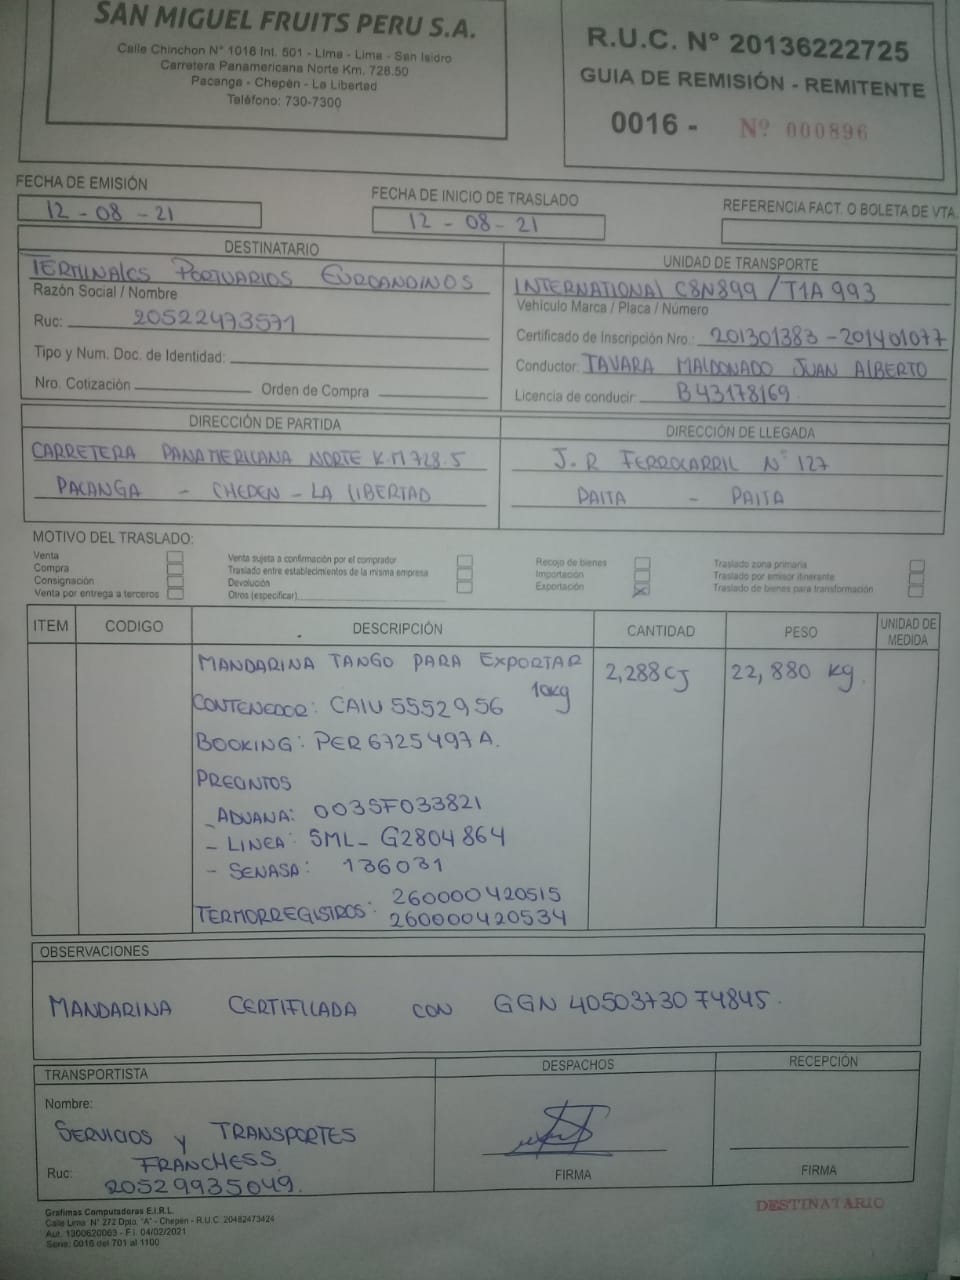 SAN MIGUEL FRUITS PERU S.A.
Calle Chinchon N° 1018 Int. 501 - Lima - Lima - San Isidro
Carretera Panamericana Norte Km. 728.50
Pacanga - Chepén - La Libertad
Teléfono: 730-7300
R.U.C. N° 20136222725
GUIA DE REMISIÓN - REMITENTE
0016 - Nº 000896
FECHA DE EMISIÓN
12 - 08 - 21
FECHA DE INICIO DE TRASLADO
12 - 08 - 21
REFERENCIA FACT. O BOLETA DE VTA.
DESTINATARIO
TERMINALES PORTUARIOS EUROANDINOS
Razón Social / Nombre
Ruc: 20522473571
Tipo y Num. Doc. de Identidad:
Nro. Cotización Orden de Compra
UNIDAD DE TRANSPORTE
INTERNATIONAL C8N899 / T1A 993
Vehículo Marca / Placa / Número
Certificado de Inscripción Nro.: 201301383 - 201401077
Conductor: TAVARA MALDONADO JUAN ALBERTO
Licencia de conducir: B43178169
DIRECCIÓN DE PARTIDA
CARRETERA PANAMERICANA NORTE K.M 728.5
PACANGA - CHEPEN - LA LIBERTAD
DIRECCIÓN DE LLEGADA
J.R FERROCARRIL N° 127
PAITA - PAITA
MOTIVO DEL TRASLADO:
Venta
Compra
Consignación
Venta por entrega a terceros
Venta sujeta a confirmación por el comprador
Traslado entre establecimientos de la misma empresa
Devolución
Otros (especificar)
Recojo de bienes
Importación
Exportación X
Traslado zona primaria
Traslado por emisor itinerante
Traslado de bienes para transformación
ITEM CODIGO DESCRIPCIÓN CANTIDAD PESO UNIDAD DE MEDIDA
MANDARINA TANGO PARA EXPORTAR 2,288 CJ 22,880 kg.
10kg
CONTENEDOR: CAIU 5552956
BOOKING: PER 6725497A.
PRECINTOS
- ADUANA: 0035F033821
- LINEA: SML- G2804864
- SENASA: 136031
TERMORREGISTROS: 260000420515
260000420534
OBSERVACIONES
MANDARINA CERTIFICADA CON GGN 4050373074845.
TRANSPORTISTA
Nombre:
SERVICIOS Y TRANSPORTES
FRANCHESS
Ruc: 20529935049.
DESPACHOS
FIRMA
RECEPCIÓN
FIRMA
DESTINATARIO
Grafimas Computadoras E.I.R.L.
Calle Lima N° 272 Dpto. "A" - Chepén - R.U.C. 20482473424
Aut. 1300620063 - F.I. 04/02/2021
Serie: 0016 del 701 al 1100